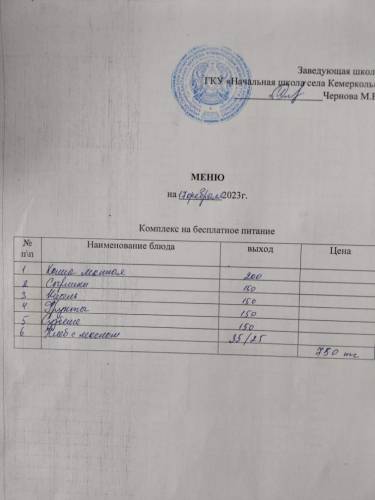 Заведующая школ
ГКУ «Начальная школа села Кемерколь
Чернова М.
МЕНЮ
на 17 февраля 2023г.
Комплекс на бесплатное питание
№ п\п Наименование блюда выход Цена
1 Каша молочная 200
2 150
3 150
4 Фрукты 150
5 150
6 Хлеб с маслом 35/25
750 тг